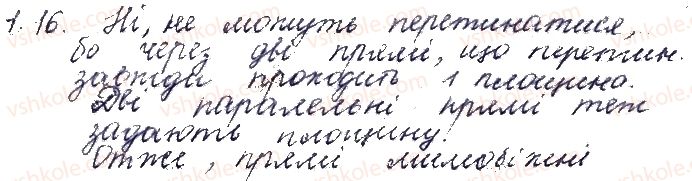 1.16. Ні, не можуть перетинатися,
бо через дві прямі, що перетин.
завжди проходить 1 площина.
Дві паралельні прямі теж
задають площину.
Отже, прямі мимобіжні